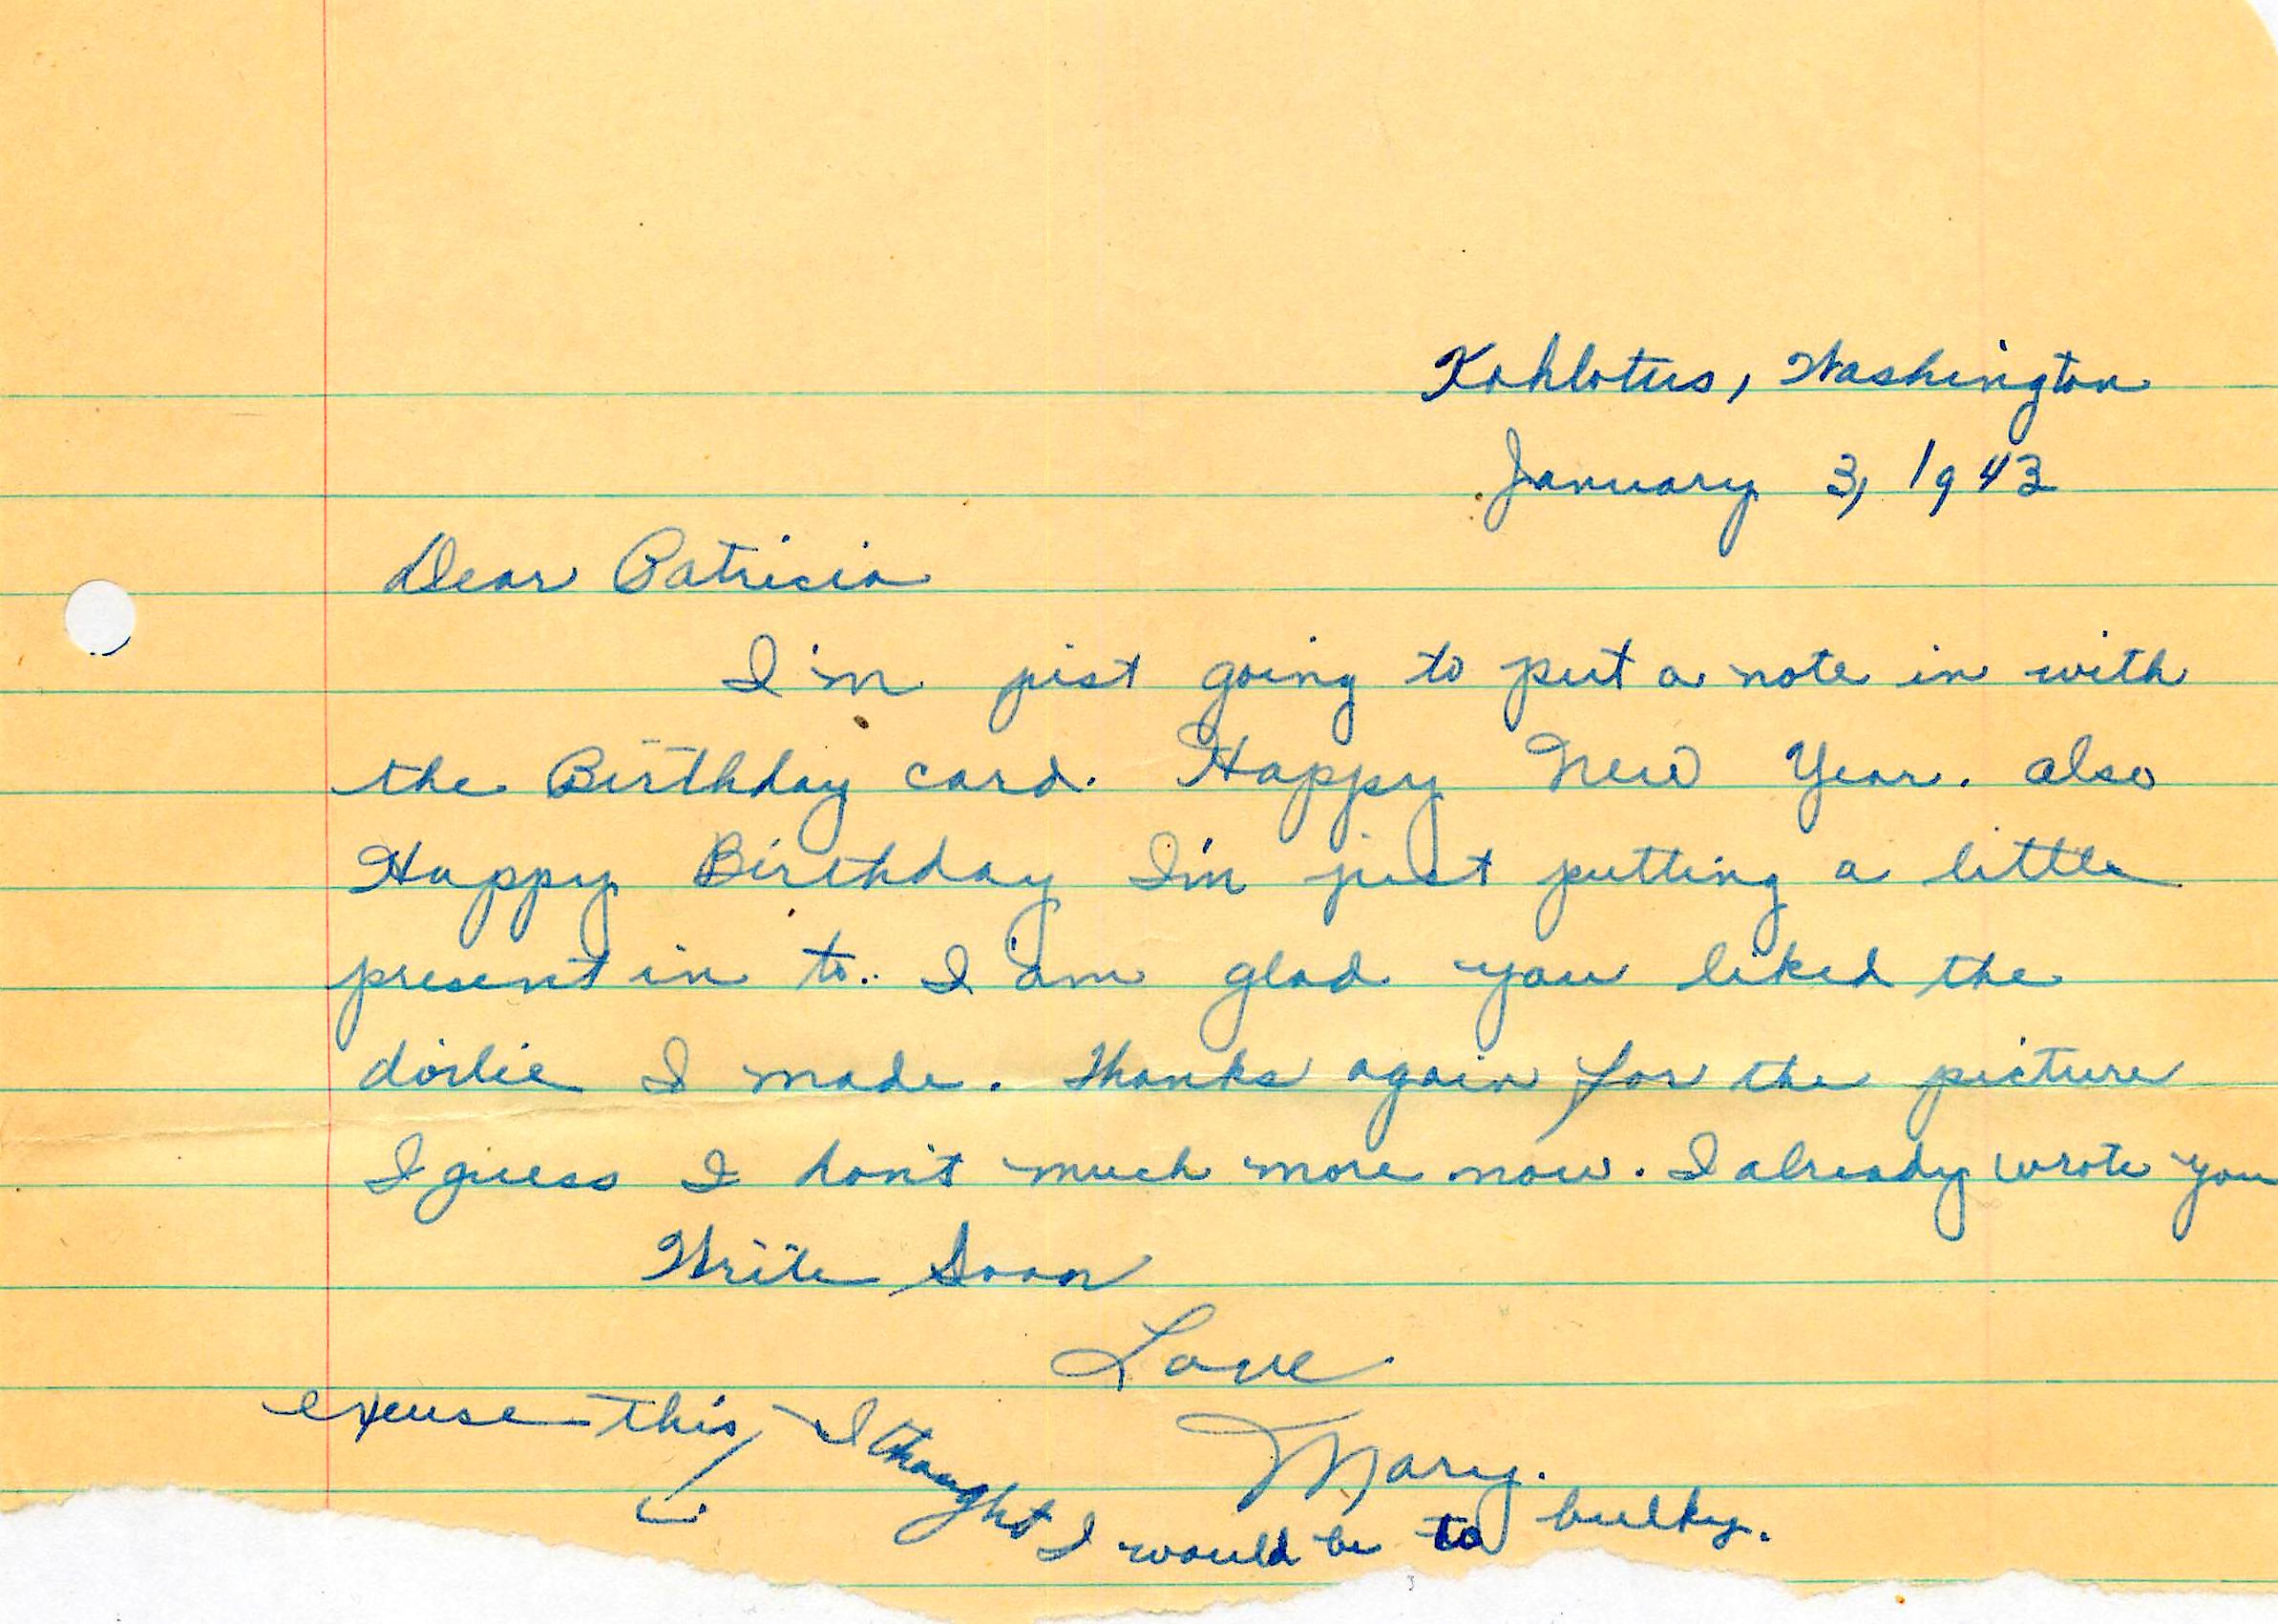 Kahlotus, Washington
January 3, 1943
Dear Patricia
I'm just going to put a note in with
the Birthday card. Happy New Year. also
Happy Birthday I'm just putting a little
present in to. I am glad you liked the
doilie I made. Thanks again for the picture
I guess I don't much more now. I already wrote you
Write Soon
Love
Mary.
excuse this, I thought I would be to bulky.